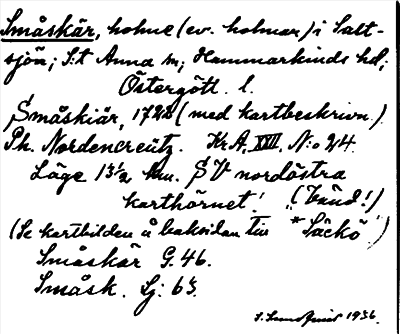 Småskär, holme (ev. holmar) i Salt-
sjön; S:t Anna sn; Hammarkinds hd;
Östergötl. l.
Småskiär, 1728 (med kartbeskrivn.)
Ph. Nordencreütz. Kr.A. XVII, N:o 24.
Läge 13½ km. SV nordöstra
karthörnet! (bänd!)
(Se kartbilden å baksidan till "Säckö")
Småskär G. 46.
Småsk. Lj: 63.
1936.